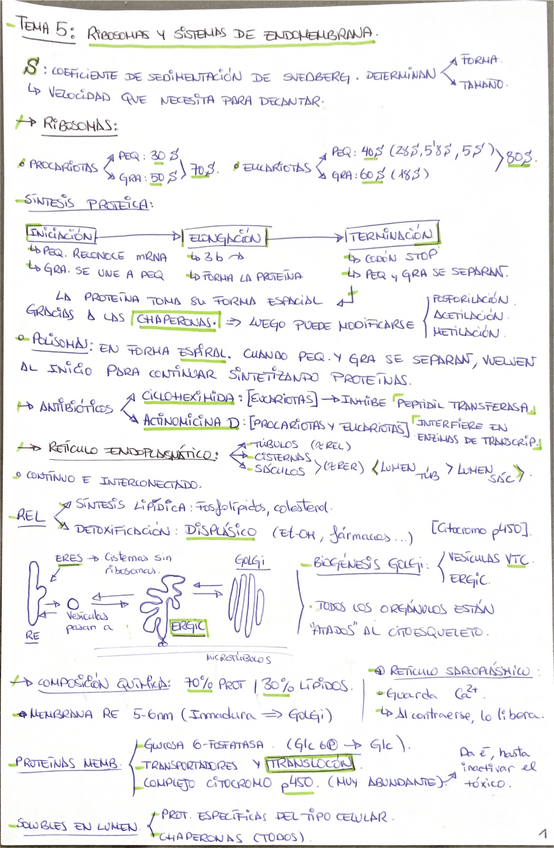 - TEMA 5: RIBOSOMAS Y SISTEMAS DE ENDOMEMBRANA.
S: COEFICIENTE DE SEDIMENTACIÓN DE SVEDBERG. DETERMINAN FORMA. TAMAÑO.
↳ VELOCIDAD QUE NECESITA PARA DECANTAR.
→ RIBOSOMAS:
PROCARIOTAS PEQ: 30S GRA: 50S 70S. EUCARIOTAS PEQ: 40S (28S, 5'8S, 5S) GRA: 60S (18S) 80S.
SÍNTESIS PROTEICA:
INICIACIÓN → ELONGACIÓN → TERMINACIÓN
↳ PEQ. RECONOCE mRNA ↳ 3b ↳ CODÓN STOP
↳ GRA. SE UNE A PEQ ↳ FORMA LA PROTEÍNA ↳ PEQ Y GRA SE SEPARAN.
LA PROTEÍNA TOMA SU FORMA ESPACIAL
GRACIAS A LAS CHAPERONAS. ⇒ LUEGO PUEDE MODIFICARSE FOSFORILACIÓN. ACETILACIÓN. METILACIÓN.
POLISOMA: EN FORMA ESPIRAL. CUANDO PEQ. Y GRA SE SEPARAN, VUELVEN
AL INICIO PARA CONTINUAR SINTETIZANDO PROTEÍNAS.
→ ANTIBIÓTICOS CICLOHEXIMIDA: [EUCARIOTAS] → INHIBE "PEPTIDIL TRANSFERASA"
ACTINOMICINA D: [PROCARIOTAS Y EUCARIOTAS] "INTERFIERE EN ENZIMAS DE TRANSCRIP."
→ RETÍCULO ENDOPLASMÁTICO: TÚBULOS (REL)
CISTERNAS
SÁCULOS (RER) LUMEN TÚB > LUMEN SÁC.
CONTINUO E INTERCONECTADO.
REL SÍNTESIS LIPÍDICA: Fosfolípidos, colesterol.
DETOXIFICACIÓN: DISPLÁSICO (Et-OH, fármacos...) [Citocromo p450].
ERES → Cisternas sin ribosomas.
GOLGI
RE
Vesículas pasan a
ERGIC
MICROTÚBULOS
- BIOGÉNESIS GOLGI: VESÍCULAS VTC. ERGIC.
TODOS LOS ORGÁNULOS ESTÁN
"ATADOS" AL CITOESQUELETO.
→ COMPOSICIÓN QUÍMICA: 70% PROT | 30% LÍPIDOS.
MEMBRANA RE 5-6nm (Inmadura ⇒ GOLGI)
RETÍCULO SARCOPLÁSMICO:
Guarda Ca²⁺.
↳ Al contraerse, lo libera.
PROTEÍNAS MEMB. GLUCOSA 6-FOSFATASA. (Glc 6P → Glc).
TRANSPORTADORES Y TRANSLOCÓN.
COMPLEJO CITOCROMO p450. (MUY ABUNDANTE).
Da é, hasta
inactivar el
tóxico.
SOLUBLES EN LUMEN. PROT. ESPECÍFICAS DEL TIPO CELULAR.
CHAPERONAS (TODOS).
1